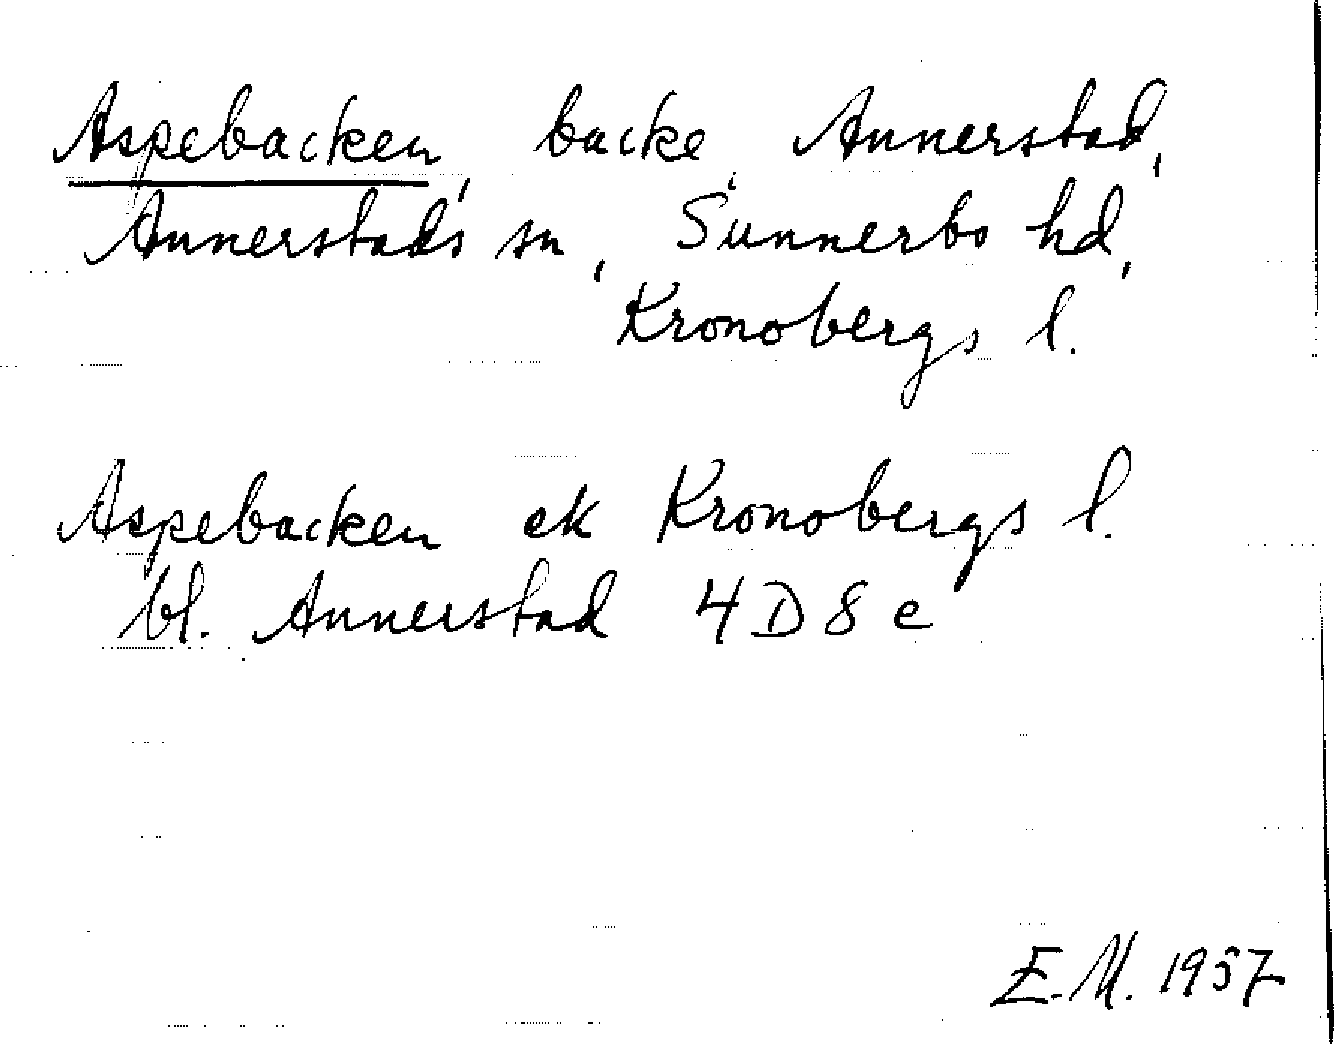 Aspebacken, backe, Annerstad,
Annerstads sn, Sunnerbo hd,
Kronobergs l.
Aspebacken ek Kronobergs l.
bl. Annerstad 4D8e
E.M. 1957